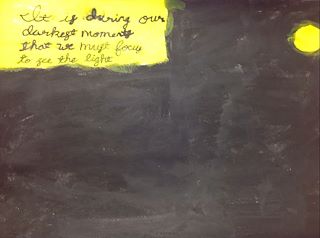 It is during our
darkest moments
that we must focus
to see the light